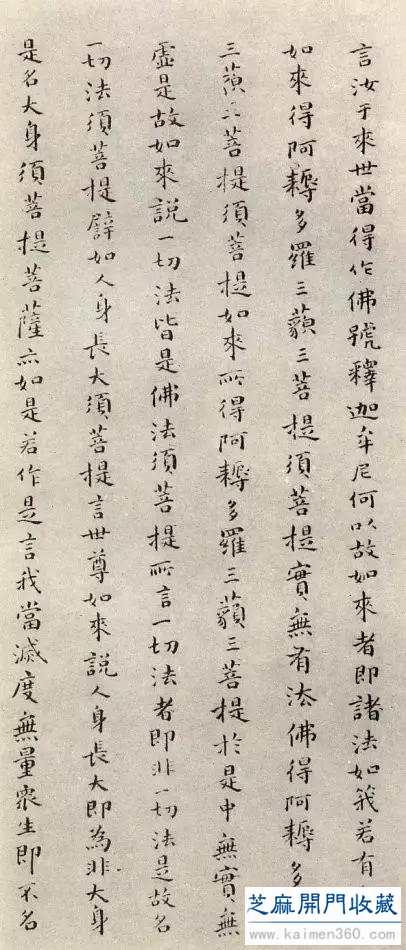 言汝于來世當得作佛號釋迦牟尼何以故如來者即諸法如義若有
如來得阿耨多羅三藐三菩提須菩提實無有法佛得阿耨多
三藐三菩提須菩提如來所得阿耨多羅三藐三菩提於是中無實無
虛是故如來說一切法皆是佛法須菩提所言一切法者即非一切法是故名
一切法須菩提譬如人身長大須菩提言世尊如來說人身長大即為非大身
是名大身須菩提菩薩亦如是若作是言我當滅度無量眾生即不名
芝麻開門收藏
www.kaimen360.com